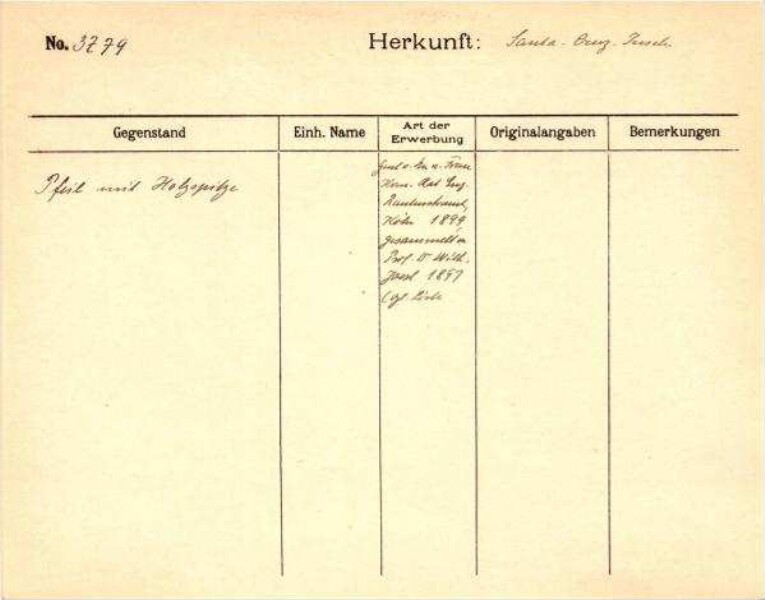 No. 3779 Herkunft: Santa-Cruz-Inseln
Gegenstand Einh. Name Art der Erwerbung Originalangaben Bemerkungen
Pfeil mit Holzspitze
Kom. Rat Eug.
Rautenstrauch,
Köln 1899
gesammelt v.
Prof. Dr Wilh.
Joest 1897